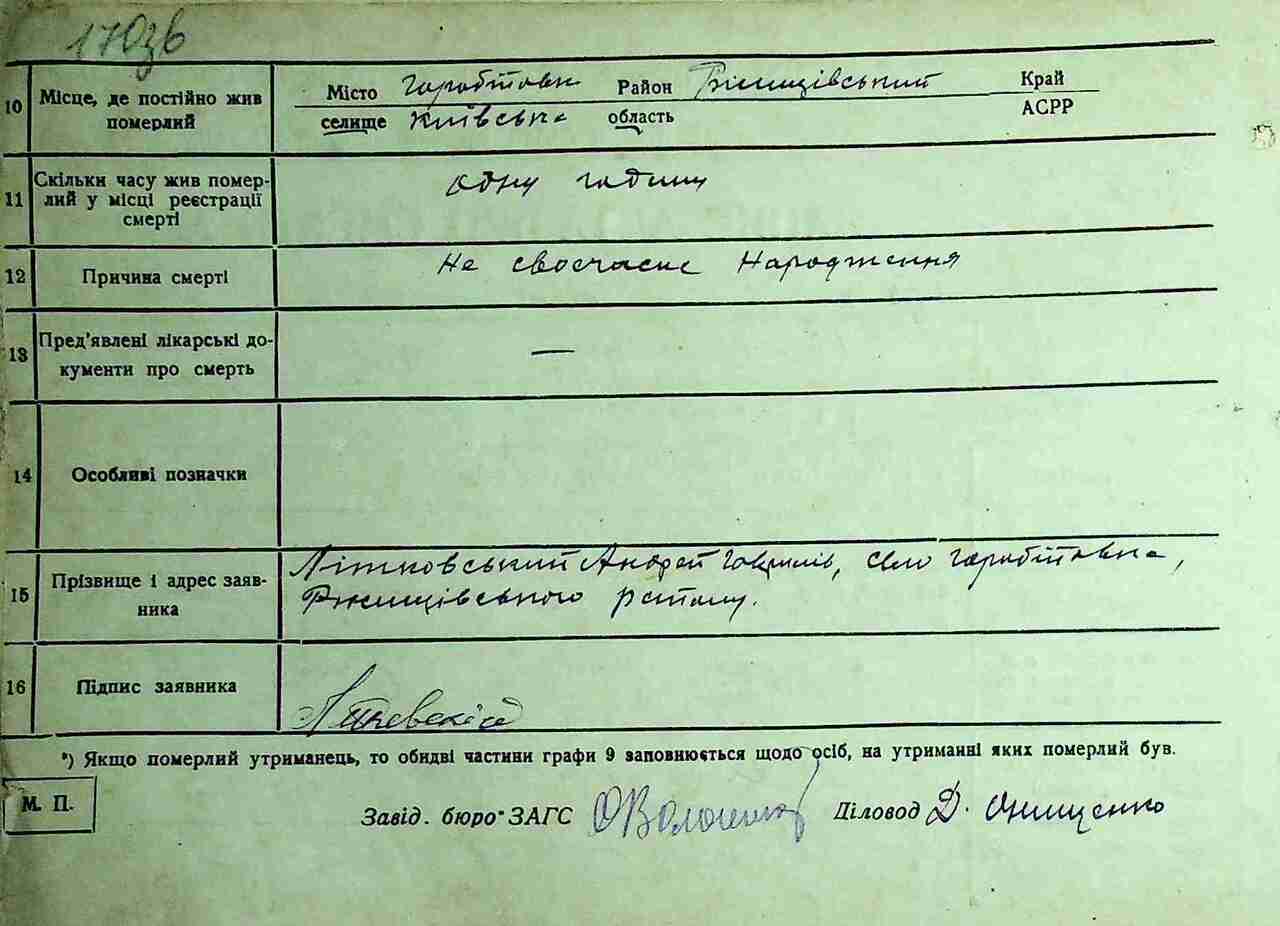 170зв
10 Місце, де постійно жив померлий Місто Район Ржищівський Край
селище Київська область АСРР
11 Скільки часу жив помер-
лий у місці реєстрації
смерті
одну годину
12 Причина смерті Не своєчасне Народження
13 Пред'явлені лікарські до-
кументи про смерть
—
14 Особливі позначки
15 Прізвище і адрес заяв-
ника
Літковський Андрей Гаврилів, село
Ржищівського району.
16 Підпис заявника
*) Якщо померлий утриманець, то обидві частини графи 9 заповнюється щодо осіб, на утриманні яких померлий був.
М. П.
Завід. бюро ЗАГС Діловод Д. Онищенко